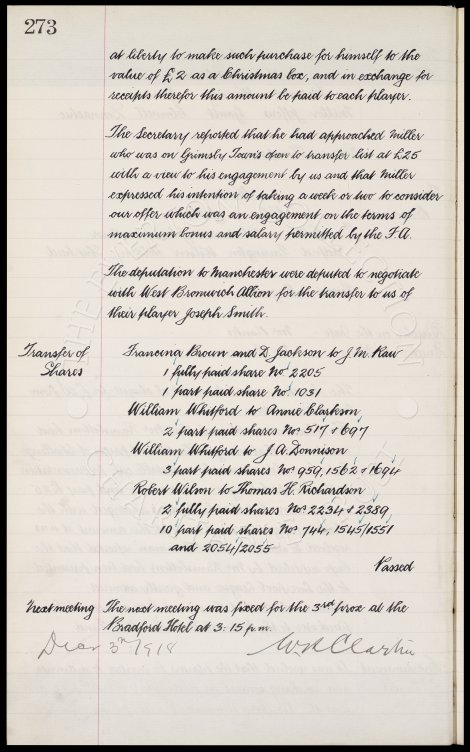 273
at liberty to make such purchase for himself to the
value of £2 as a Christmas box, and in exchange for
receipts therefor this amount be paid to each player.
The Secretary reported that he had approached Miller
who was on Grimsby Town's open to transfer list at £25
with a view to his engagement by us and that Miller
expressed his intention of taking a week or two to consider
our offer which was an engagement on the terms of
maximum bonus and salary permitted by the F.A.
The deputation to Manchester were deputed to negotiate
with West Bromwich Albion for the transfer to us of
their player Joseph Smith.
Transfer of Francina Brown and D. Jackson to J. M. Raw
Shares 1 fully paid share No. 2205
1 part paid share No. 1031
William Whitford to Annie Clarkson
2 part paid shares Nos. 517 & 697
William Whitford to J. A. Donnison
3 part paid shares Nos. 959, 1562 & 1694
Robert Wilson to Thomas H. Richardson
2 fully paid shares Nos. 2234 & 2389
10 part paid shares Nos. 744, 1545/1551
and 2054/2055
Passed
Next meeting The next meeting was fixed for the 3rd prox at the
Bradford Hotel at 3.15 p.m.
3rd 1918